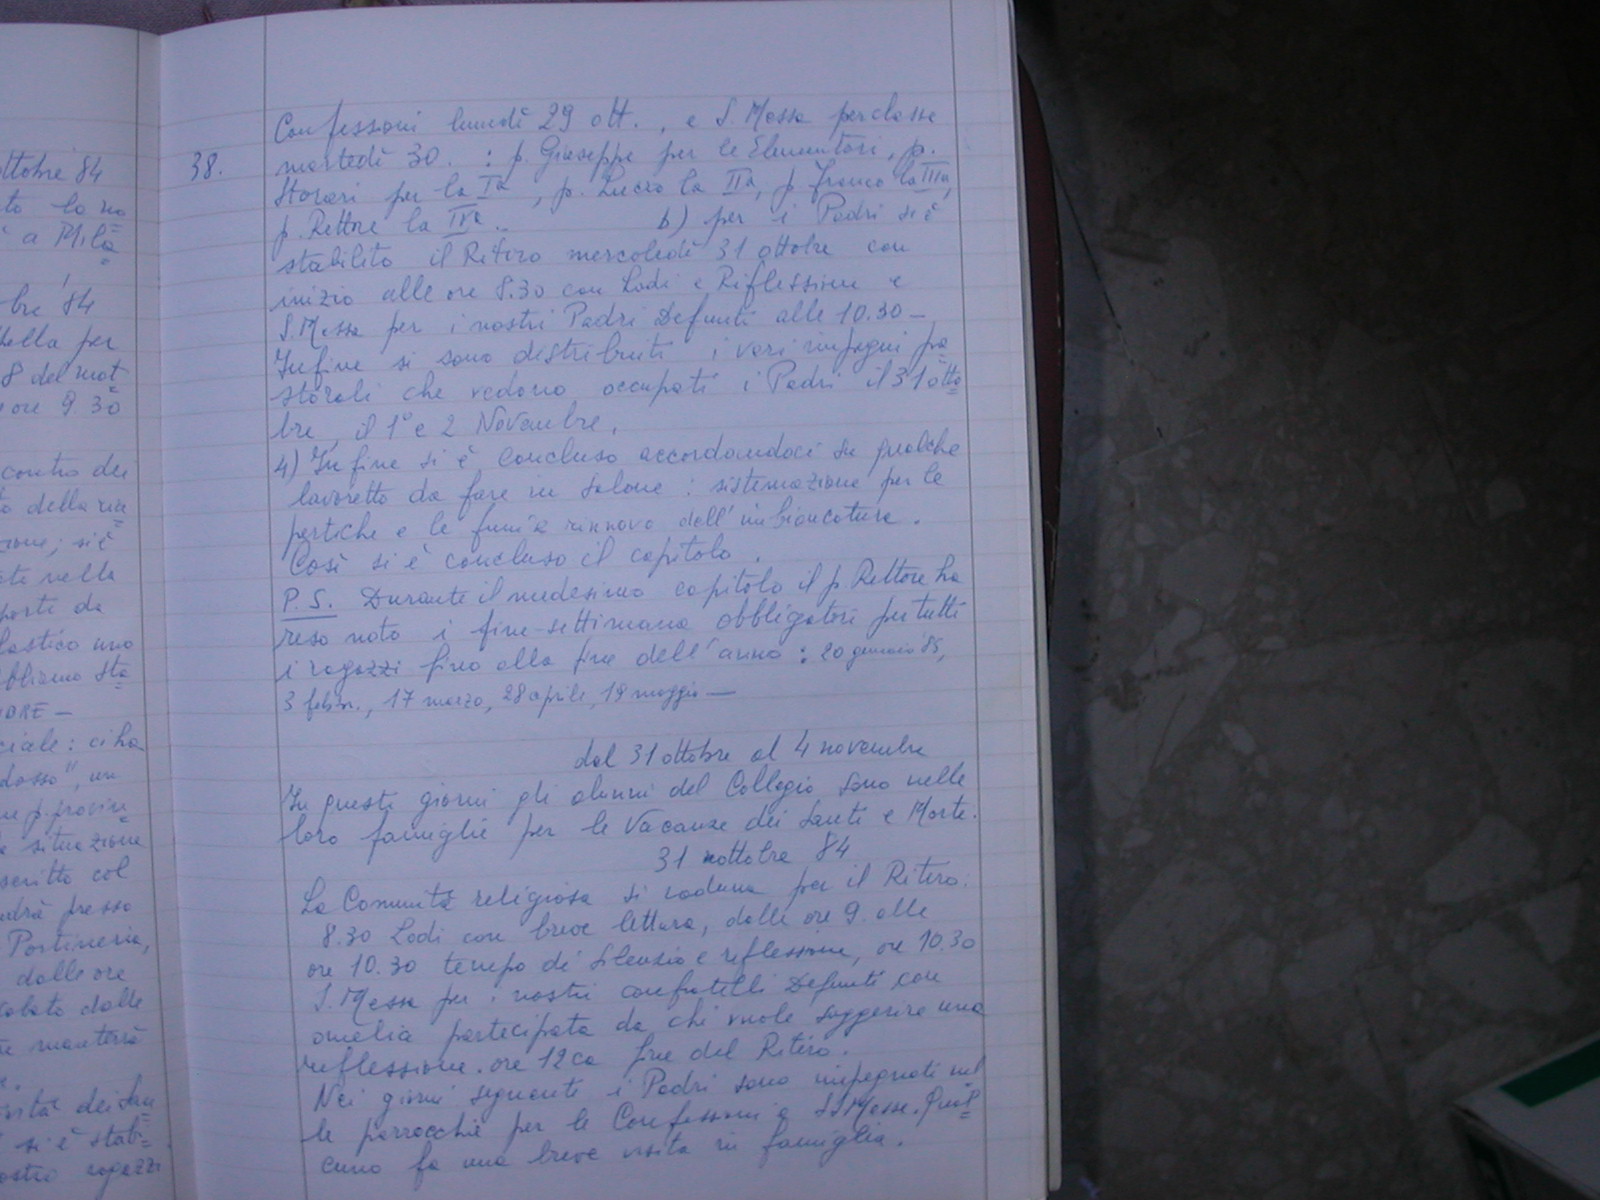 ottobre '84
to la no
a Mila
bre '84
della per
8 del mat
ore 9 30
contro dei
della riu
zione; si è
te nella
porti da
lastico uno
bbiamo sta
ORE —
ciale: ci ha
dosso", un
p. provin
situazione
scritto col
edrà presso
Portineria,
dalle ore
dalle
manterrà
dei San
si è stabi
ostri ragazzi
38.
Confessioni lunedì 29 ott., e S. Messa per classe
martedì 30. : p. Giuseppe per le Elementari, p.
Storari per la Iª, p. Lucio la IIª, p. Franco la IIIª,
p. Rettore la IVª.. b) per i Padri si è
stabilito il Ritiro mercoledì 31 ottobre con
inizio alle ore 8.30 con Lodi e Riflessione e
S. Messa per i nostri Padri Defunti alle 10.30 —
Infine si sono distribuiti i vari impegni pa
storali che vedono occupati i Padri il 31 otto
bre, il 1° e 2 Novembre.
4) Infine si è concluso accordandoci su qualche
lavoretto da fare in salone: sistemazione per le
pertiche e le funi e rinnovo dell'imbiancatura.
Così si è concluso il capitolo.
P.S. Durante il medesimo capitolo il p. Rettore ha
reso noto i fine-settimana obbligatori per tutti
i ragazzi fino alla fine dell'anno: 20 gennaio '85,
3 febbr., 17 marzo, 28 aprile, 19 maggio —
dal 31 ottobre al 4 novembre
In questi giorni gli alunni del Collegio sono nelle
loro famiglie per le Vacanze dei Santi e Morti.
31 ottobre 84
La Comunità religiosa si raduna per il Ritiro:
8.30 Lodi con breve lettura, dalle ore 9. alle
ore 10.30 tempo di silenzio e riflessione, ore 10.30
S. Messa per i nostri confratelli Defunti con
omelia partecipata da chi vuole suggerire una
riflessione. ore 12 ca fine del Ritiro.
Nei giorni seguenti i Padri sono impegnati nel
le parrocchie per le Confessioni e SS Messe. Qual
cuno fa una breve visita in famiglia.